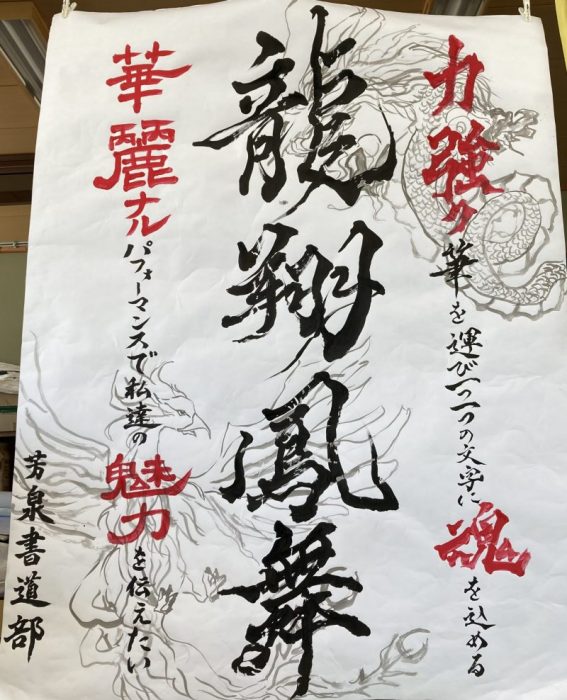 力強ク筆を運び一つ一つの文字に魂を込める
龍翔鳳舞
華麗ナルパフォーマンスで私達の魅力を伝えたい
芳泉書道部